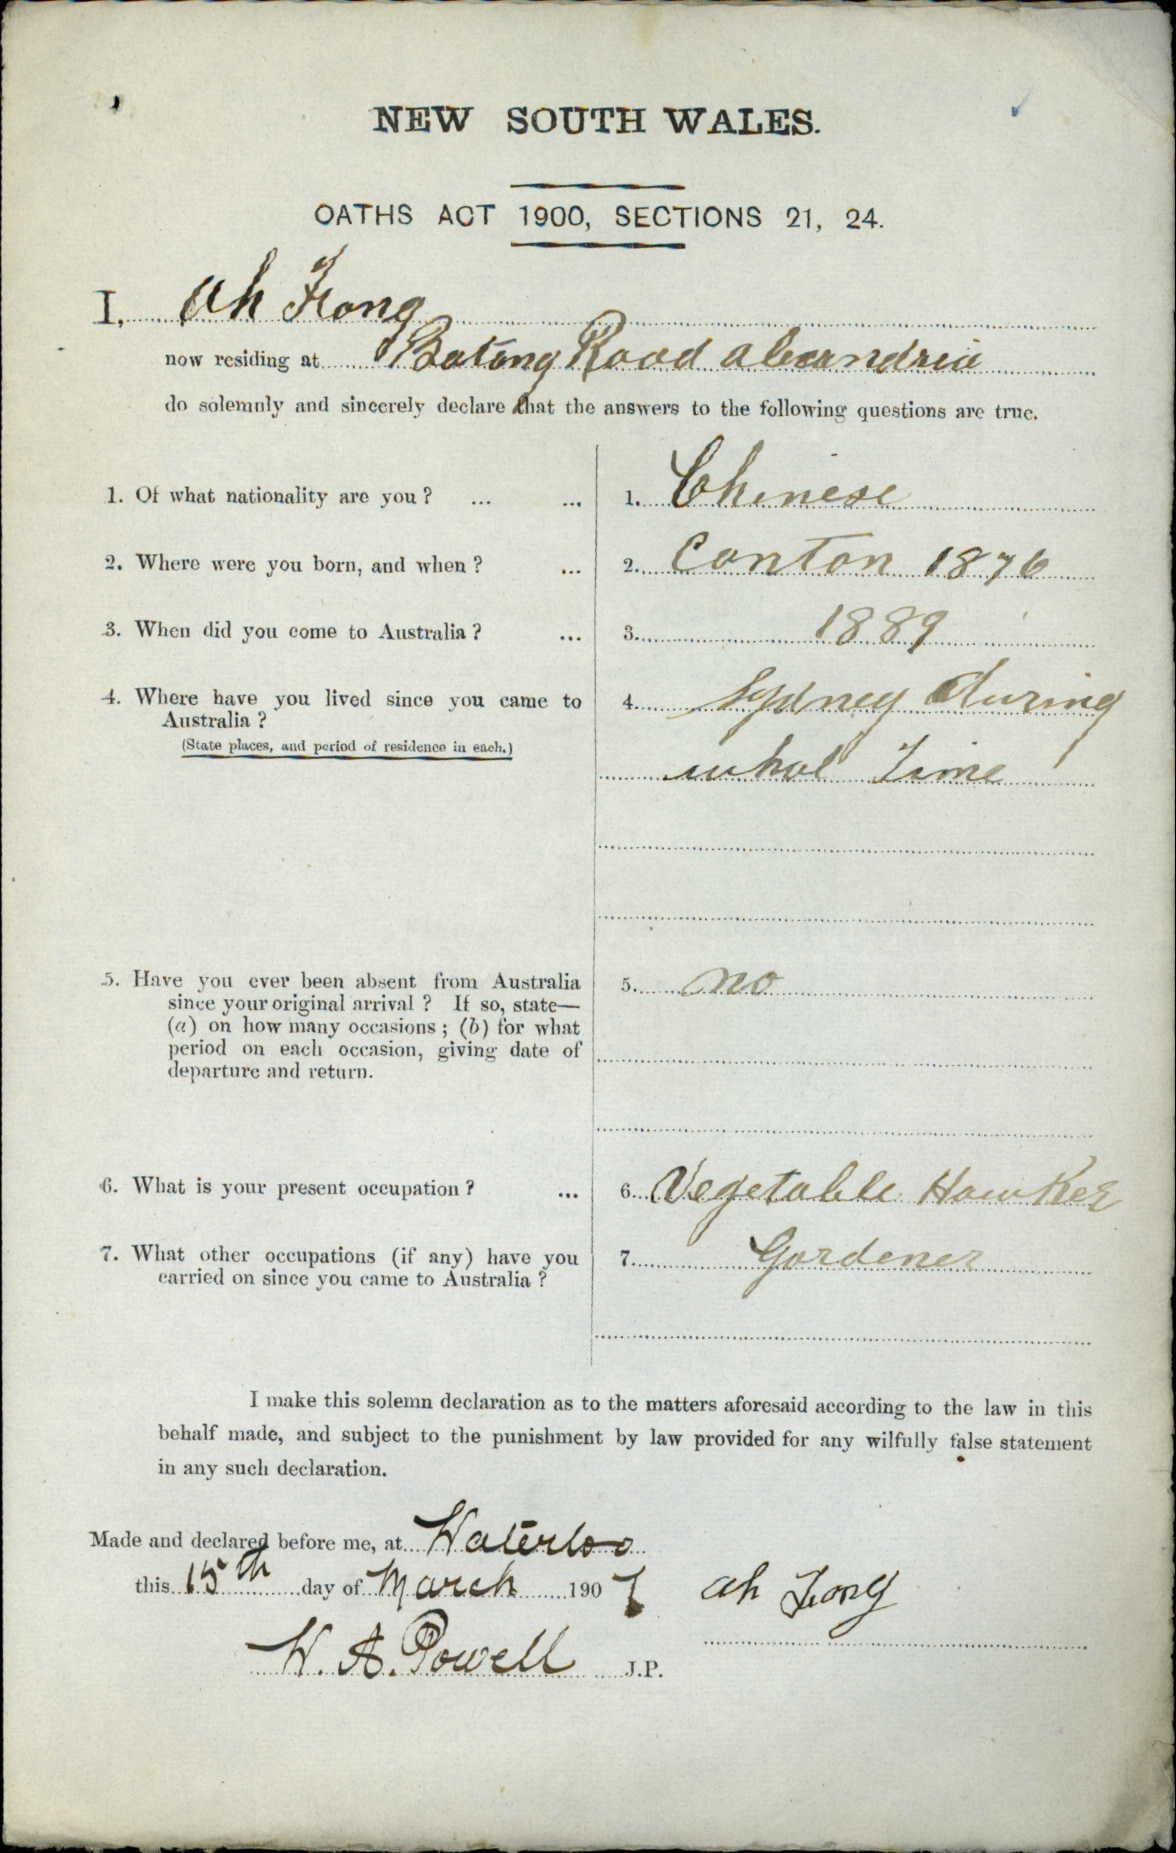 NEW SOUTH WALES.
OATHS ACT 1900, SECTIONS 21, 24.
I, Ah Fong
now residing at Botany Road Alexandria
do solemnly and sincerely declare that the answers to the following questions are true.
1. Of what nationality are you ? ... ... 1. Chinese
2. Where were you born, and when ? ... 2. Canton 1876
3. When did you come to Australia ? ... 3. 1889
4. Where have you lived since you came to 4. Sydney during
Australia ?
(State places, and period of residence in each.)
whol Time
5. Have you ever been absent from Australia 5. no
since your original arrival ? If so, state—
(a) on how many occasions ; (b) for what
period on each occasion, giving date of
departure and return.
6. What is your present occupation ? ... 6. Vegetable Hawker
7. What other occupations (if any) have you 7. Gardener
carried on since you came to Australia ?
I make this solemn declaration as to the matters aforesaid according to the law in this
behalf made, and subject to the punishment by law provided for any wilfully false statement
in any such declaration.
Made and declared before me, at Waterloo
this 15th day of March 1907 Ah Fong
W. A. Powell J.P.